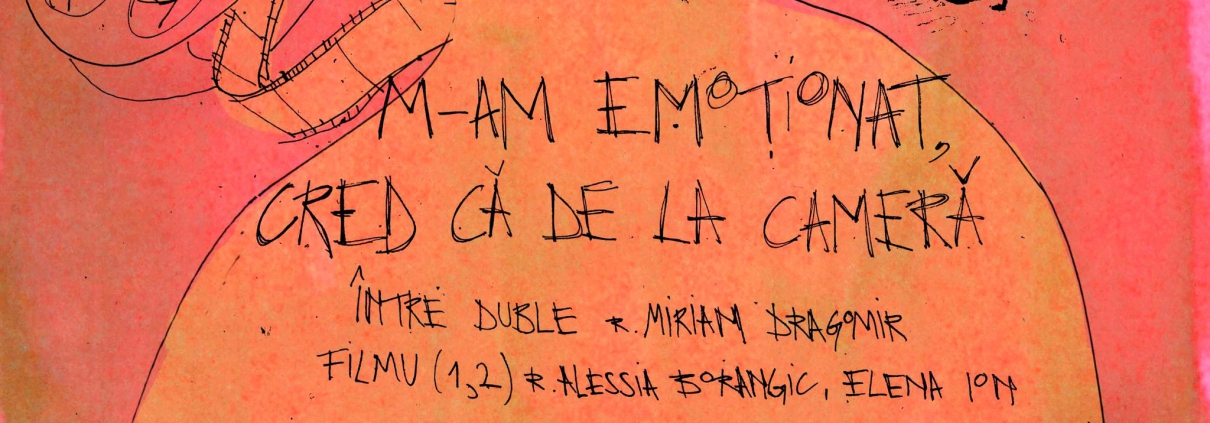 M-AM EMOȚIONAT,
CRED CĂ DE LA CAMERĂ
ÎNTRE DUBLE R. MIRIAM DRAGOMIR
FILMU (1,2) R. ALESSIA BORANGIC, ELENA ION